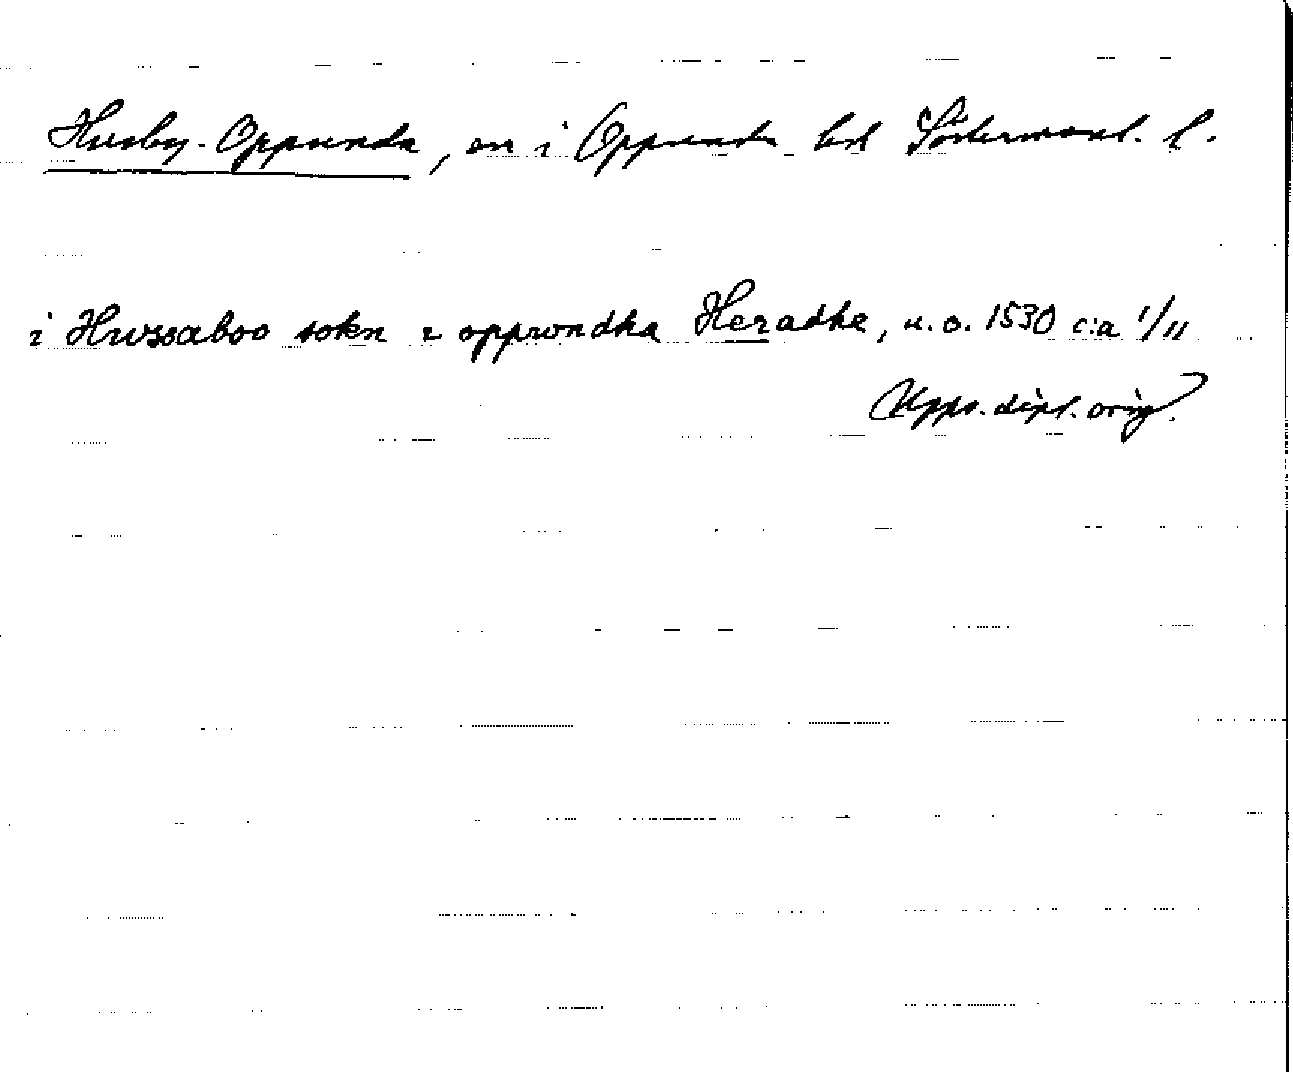 Husby-Oppunda, sn i Oppunda hd Södermanl. l.
i Hwssaboo sokn i oppwndha Heradhe, u.o. 1530 c:a 1/11
Upps. dipl. orig.